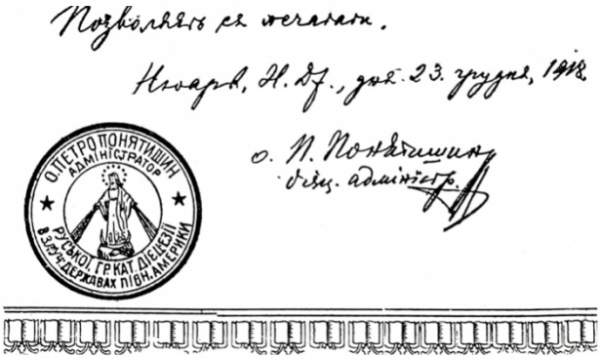 Позволяєть ся печатати.
Нюарк, Н. Дж., дня 23. грудня, 1918.
о. П. Понятишин,
адміністр.
О. ПЕТРО ПОНЯТИШИН
АДМІНІСТРАТОР
РУСЬКОЇ, ГР. КАТ. ДІЄЦЕЗІЇ
В ЗЛУЧ. ДЕРЖАВАХ ПІВН. АМЕРИКИ